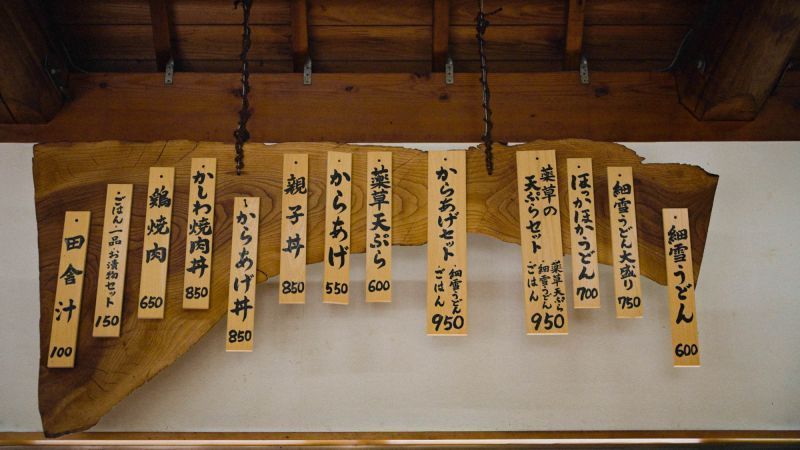 細雪うどん
600
細雪うどん大盛り
750
ほっかほかうどん
700
薬草の
天ぷらセット
・薬草天ぷら
・細雪うどん
・ごはん
950
からあげセット
・細雪うどん
・ごはん
950
薬草天ぷら
600
からあげ
550
親子丼
850
からあげ丼
850
かしわ焼肉丼
850
鶏焼肉
650
・ごはん・一品・お漬物セット
150
田舎汁
100